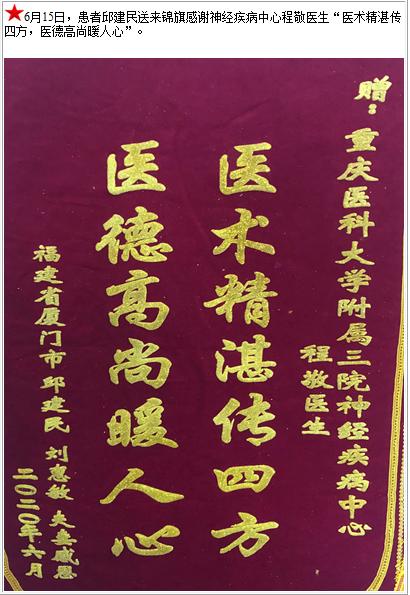 ★6月15日，患者邱建民送来锦旗感谢神经疾病中心程敬医生“医术精湛传
四方，医德高尚暖人心”。
赠：重庆医科大学附属三院神经疾病中心
程敬医生
医术精湛传四方
医德高尚暖人心
福建省厦门市邱建民 刘惠敏 夫妻感恩
二〇二〇年六月